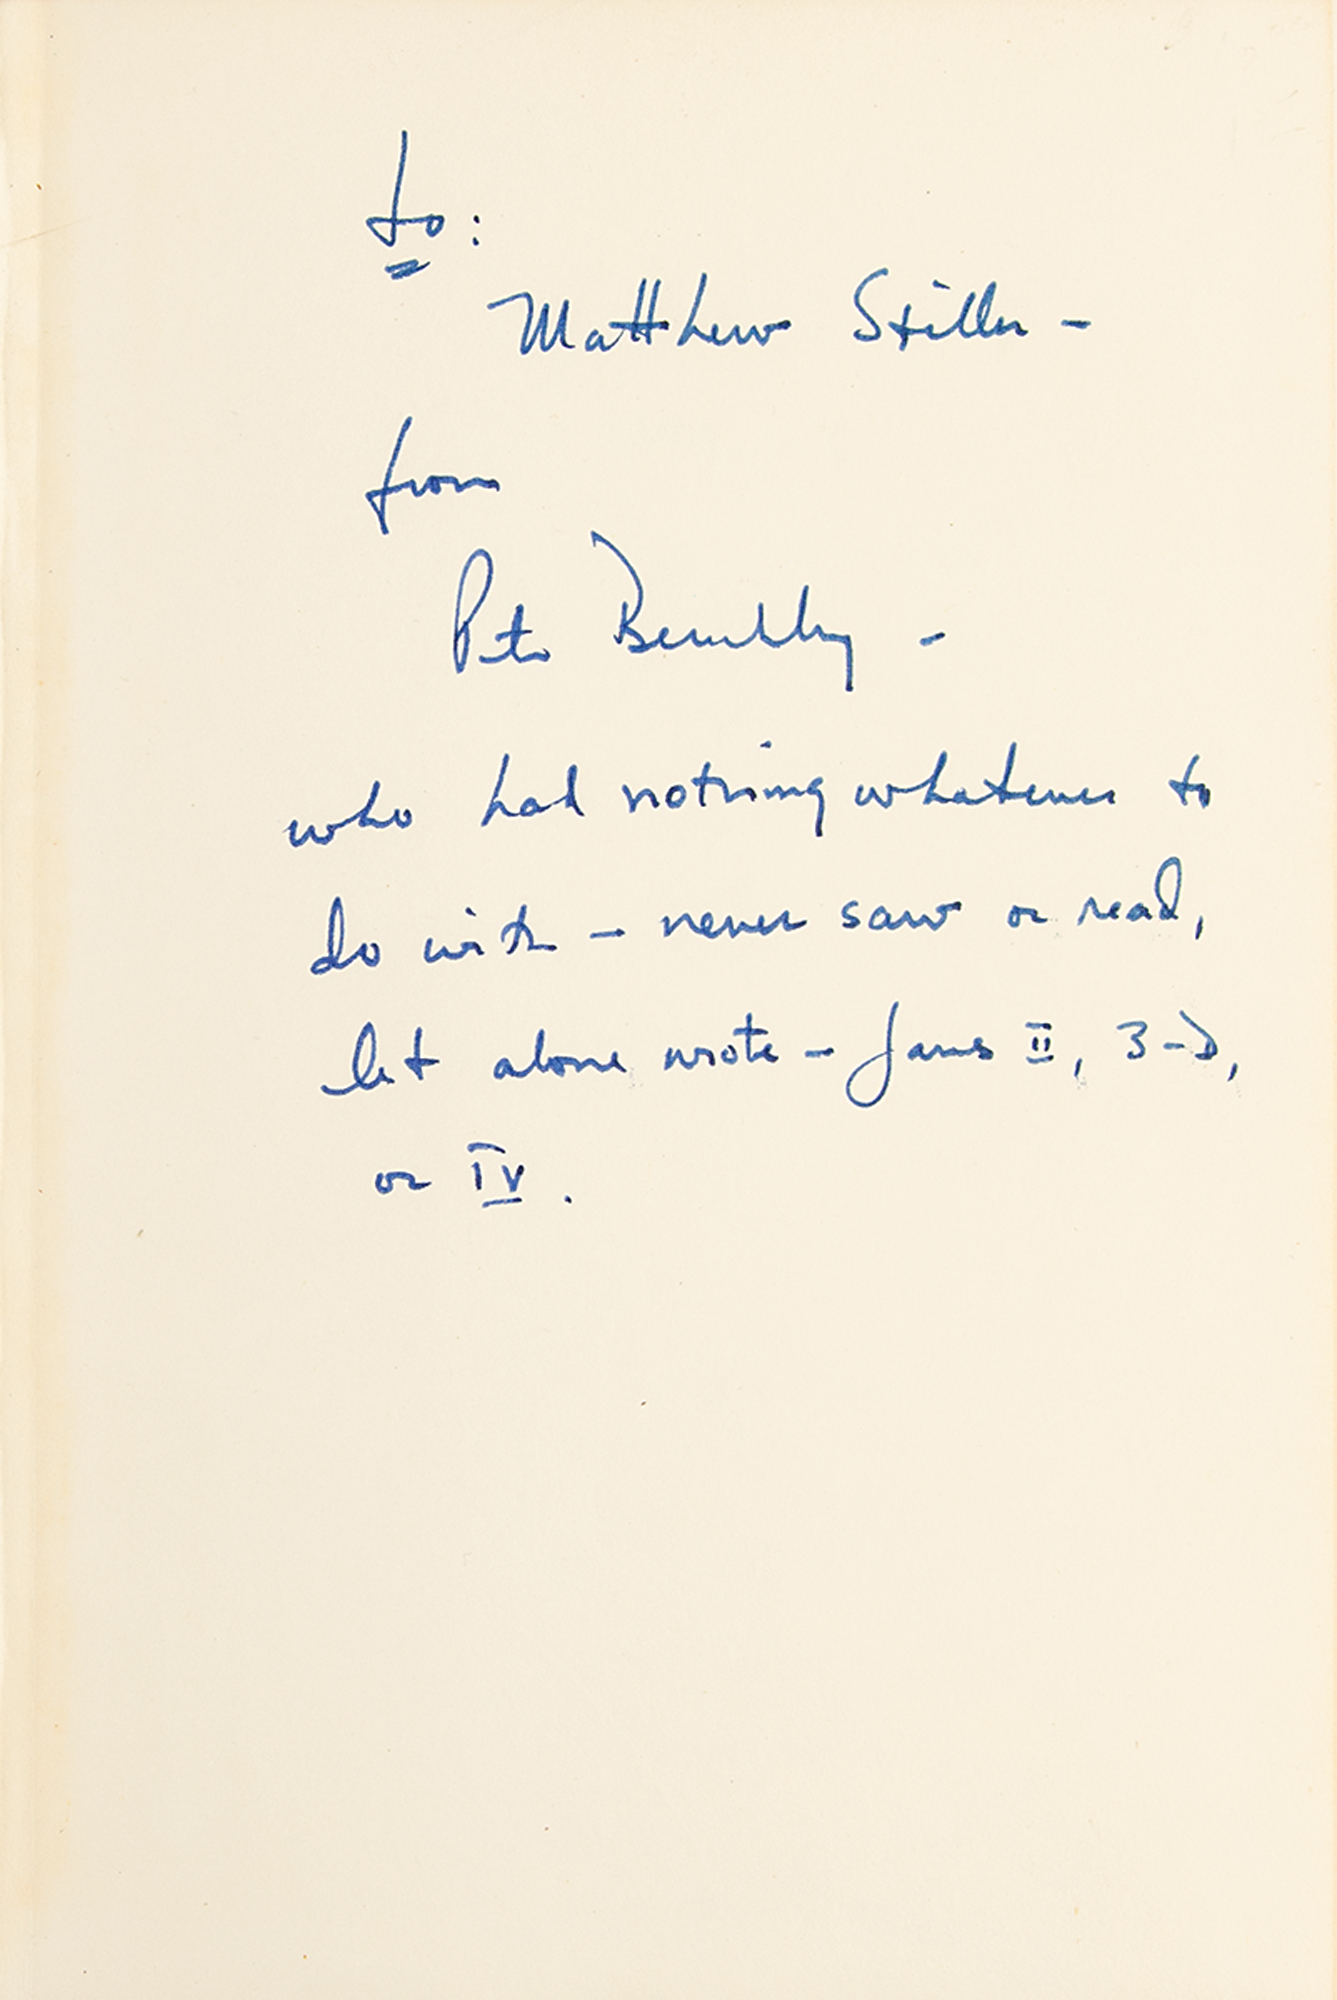 to:
Matthew Stiller -
from
Peter Benchley -
who had nothing whatever to
do with - never saw or read,
let alone wrote - Jaws II, 3-D,
or IV.